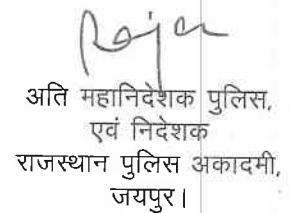 अति महानिदेशक पुलिस,
एवं निदेशक
राजस्थान पुलिस अकादमी,
जयपुर।